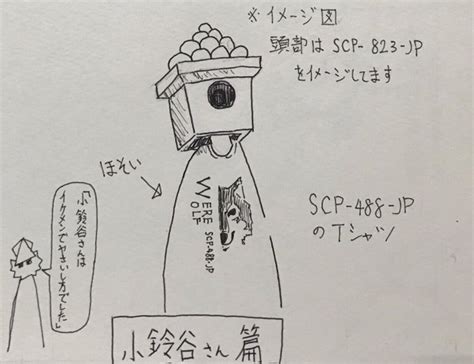 ※イメージ図
頭部は SCP-823-JP
をイメージしてます
ほそい
WERE
WOLF
SCP-488-JP
SCP-488-JP
のTシャツ
「小鈴谷さんは
イケメンでやさいし方でした」
小鈴谷さん篇